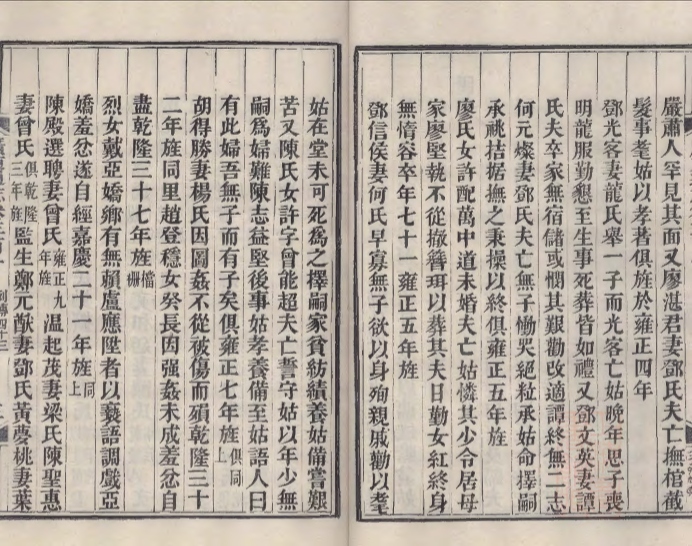 嚴肅人罕見其面又廖湛君妻鄧氏夫亡撫棺截
髮事耄姑以孝著俱旌於雍正四年
鄧光客妻龍氏舉一子而光客亡姑晚年思子喪
明龍服勤懇至生事死葬皆如禮又鄧文英妻譚
氏夫卒家無宿儲或憫其艱勸改適譚終無二志
何元燦妻鄧氏夫亡無子慟哭絕粒承姑命擇嗣
承祧拮据撫之秉操以終俱雍正五年旌
廖氏女許配萬中道未婚夫亡姑憐其少令居母
家廖堅執不從撤簪珥以葬其夫日勤女紅終身
無惰容卒年七十一雍正五年旌
鄧信侯妻何氏早寡無子欲以身殉親戚勸以耄
姑在堂未可死爲之擇嗣家貧紡績養姑備嘗艱
苦又陳氏女許字曾能超夫亡誓守姑以年少無
嗣爲婦難陳志益堅後事姑孝養備至姑語人曰
有此婦吾無子而有子矣俱雍正七年旌俱同上
胡得勝妻楊氏因圖姦不從被傷而殞乾隆三十
二年旌同里趙登穩女癸長因强姦未成羞忿自
盡乾隆三十七年旌檔冊
烈女戴亞嬌鄉有無賴盧應陞者以褻語調戲亞
嬌羞忿遂自經嘉慶二十一年旌同上
陳殿選聘妻曾氏雍正九年旌温起茂妻梁氏陳聖惠
妻曾氏俱乾隆三年旌監生鄭元猷妻鄧氏黃夢桃妻葉
列傳四十三